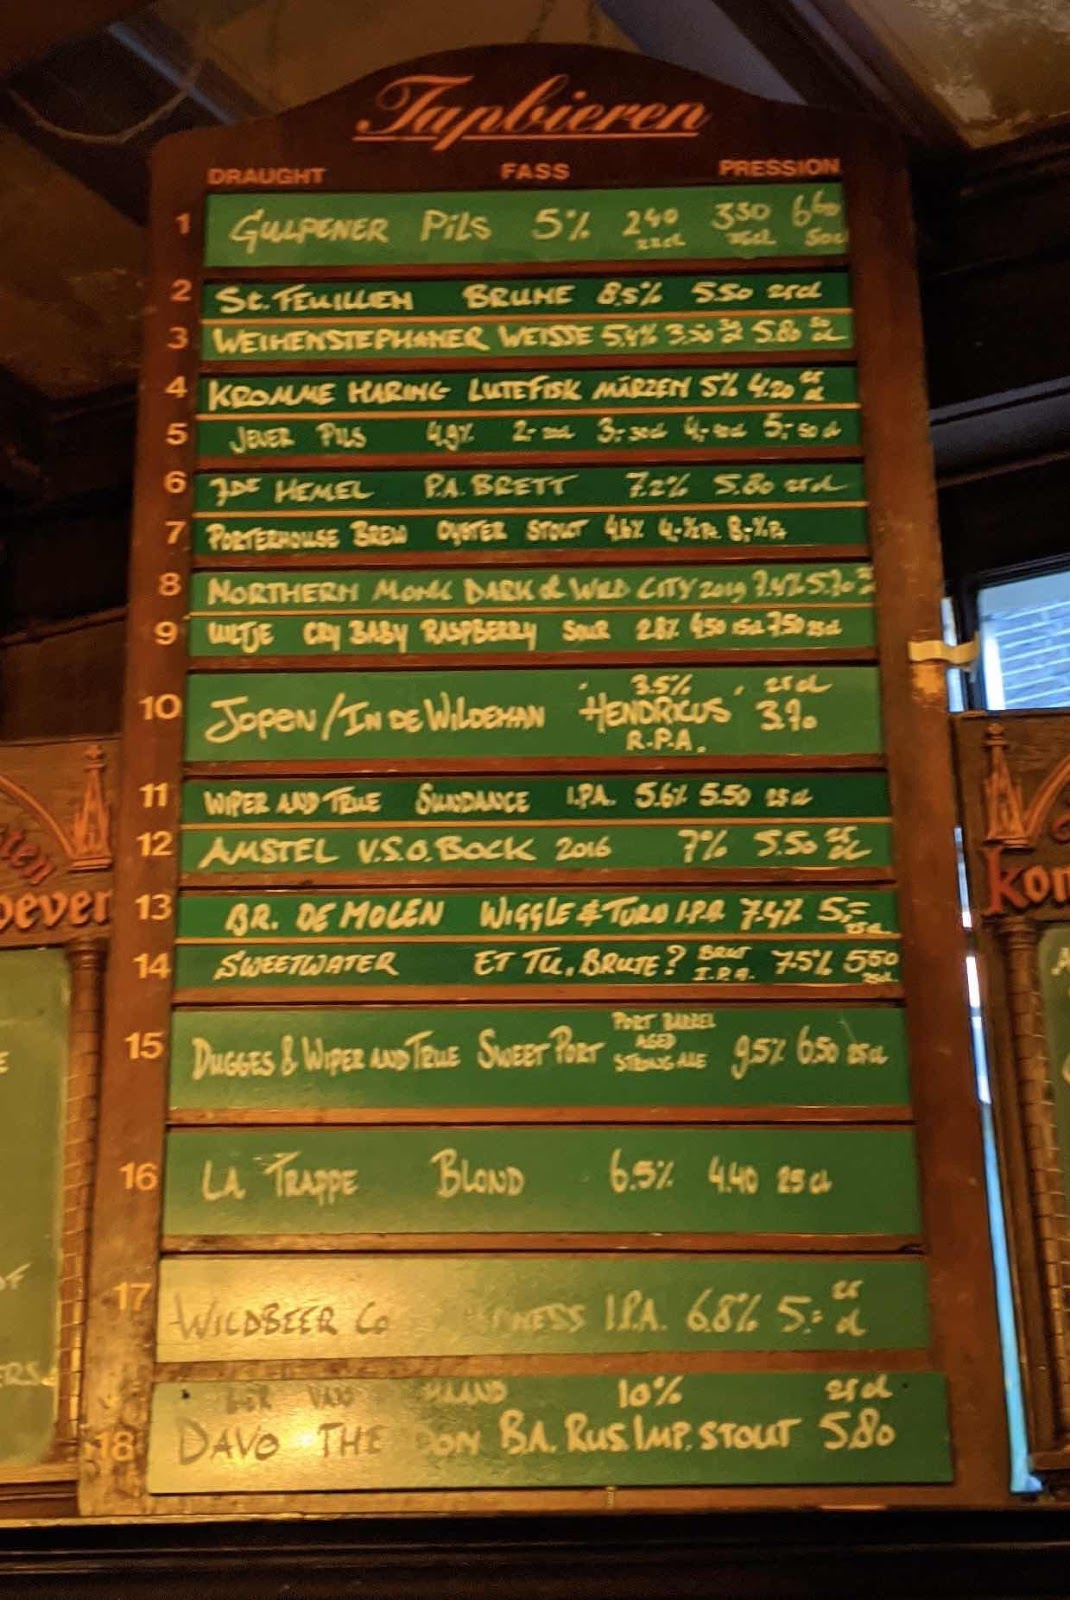 Tapbieren
DRAUGHT FASS PRESSION
1 GULPENER PILS 5% 240 22cl 350 35cl 660 50cl
2 ST. FEUILLIEN BRUNE 8.5% 5.50 25cl
3 WEIHENSTEPHANER WEISSE 5,4% 3,50 30 cl 5.80 50 cl
4 KROMME HARING LUTEFISK MÄRZEN 5% 4.20 25 cl
5 JEVER PILS 4,9% 2,- 20cl 3,- 30cl 4,- 40cl 5,- 50cl
6 7DE HEMEL P.A. BRETT 7.2% 5.80 25cl
7 PORTERHOUSE BREW OYSTER STOUT 4.6% 4,- ½Pt. 8,-
8 NORTHERN MONK DARK & WILD CITY 2019 7.4% 5.70
9 UILTJE CRY BABY RASPBERRY SOUR 2.8% 4,50 15cl 7,50 25cl
3.5% 25cl
10 JOPEN/IN DE WILDEMAN 'HENDRICUS' 3.70
R.P.A.
11 WIPER AND TRUE SUNDANCE I.P.A. 5.6% 5.50 25cl
12 AMSTEL V.S.O. BOCK 2016 7% 5.50 25 cl
13 BR. DE MOLEN WIGGLE & TURN I.P.A. 7.4% 5,- 25cl
14 SWEETWATER ET TU, BRUTE? BRUT I.P.A. 7.5% 5,50 25cl
PORT BARREL
15 DUGGES & WIPER AND TRUE SWEET PORT AGED 9.5% 6.50 25cl
STRONG ALE
16 LA TRAPPE BLOND 6.5% 4.40 25cl
17 WILDBEER Co NESS I.P.A. 6.8% 5,- 25 cl
VAN MAAND 10% 25cl
18 DAVO THE DON B.A. RUS. IMP. STOUT 5.80
oever
kon